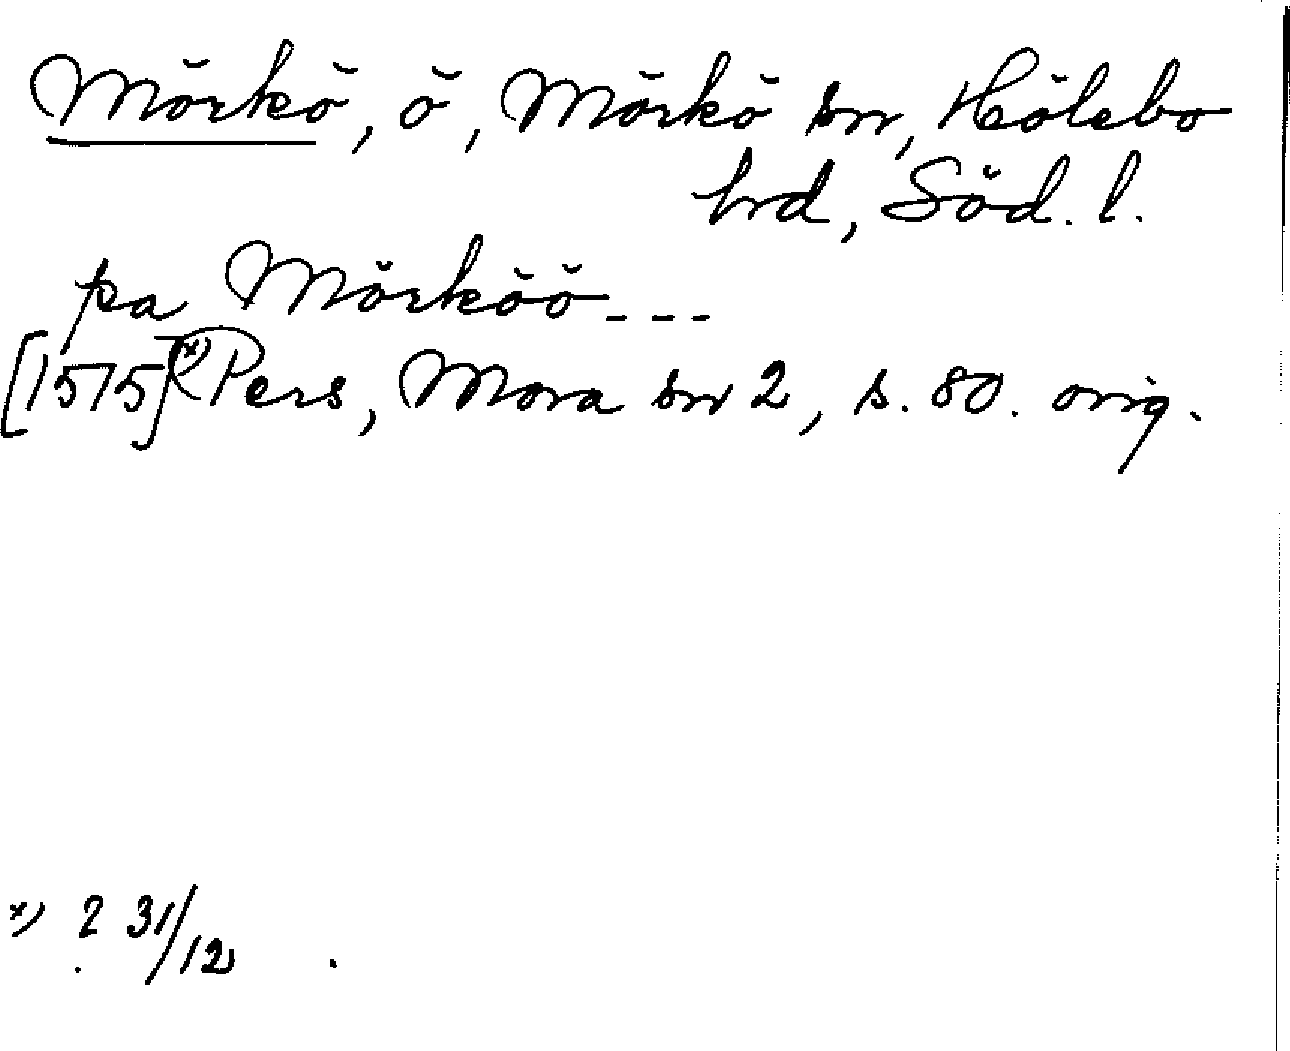 Mörkö, ö, Mörkö sn, Hölebo
hrd, Söd. l.
pa Mörköö---
[1575]x) Pers, Mora sn 2, s. 80. orig.
x) ? 31/12 .